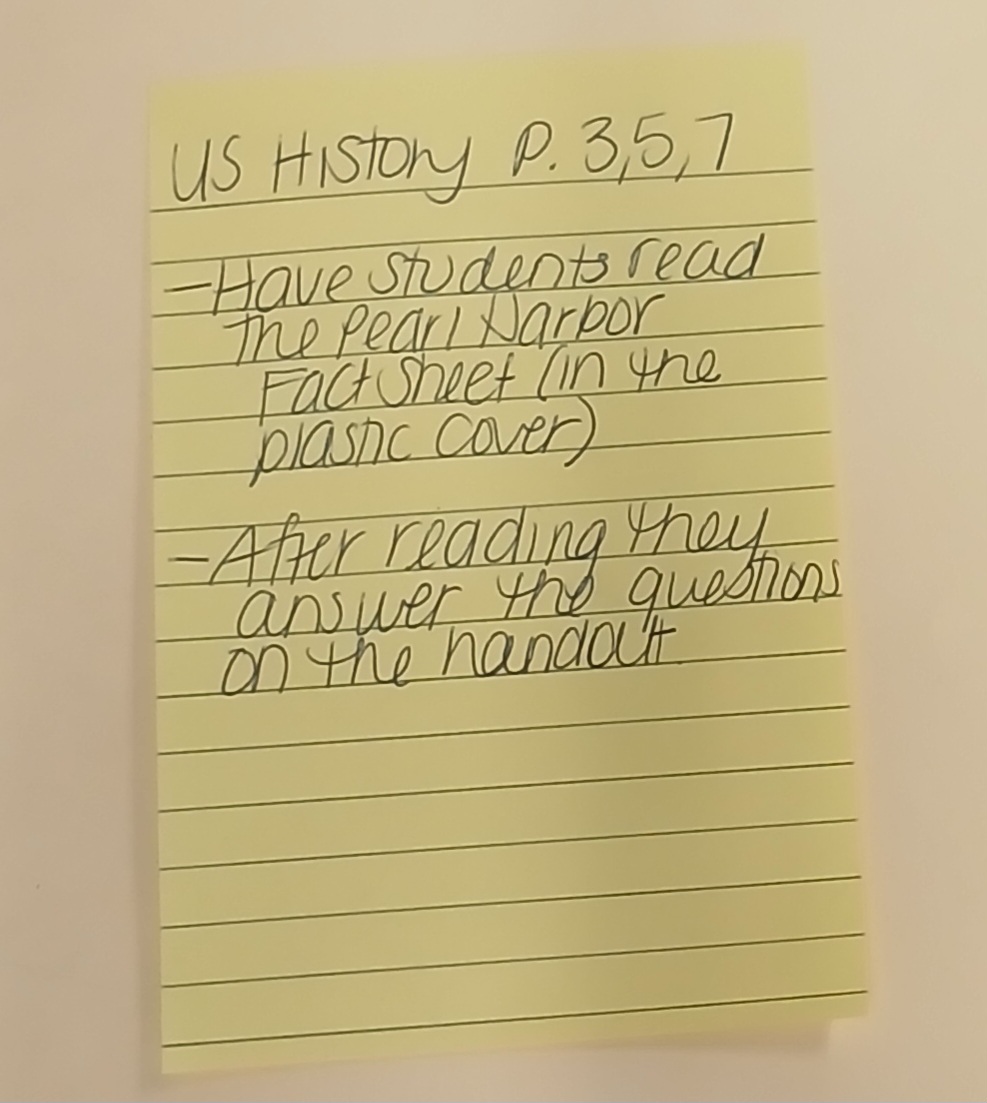 US History P. 3,5,7
- Have students read
the Pearl Harbor
Fact Sheet (in the
plastic cover)
- After reading they
answer the questions
on the handout